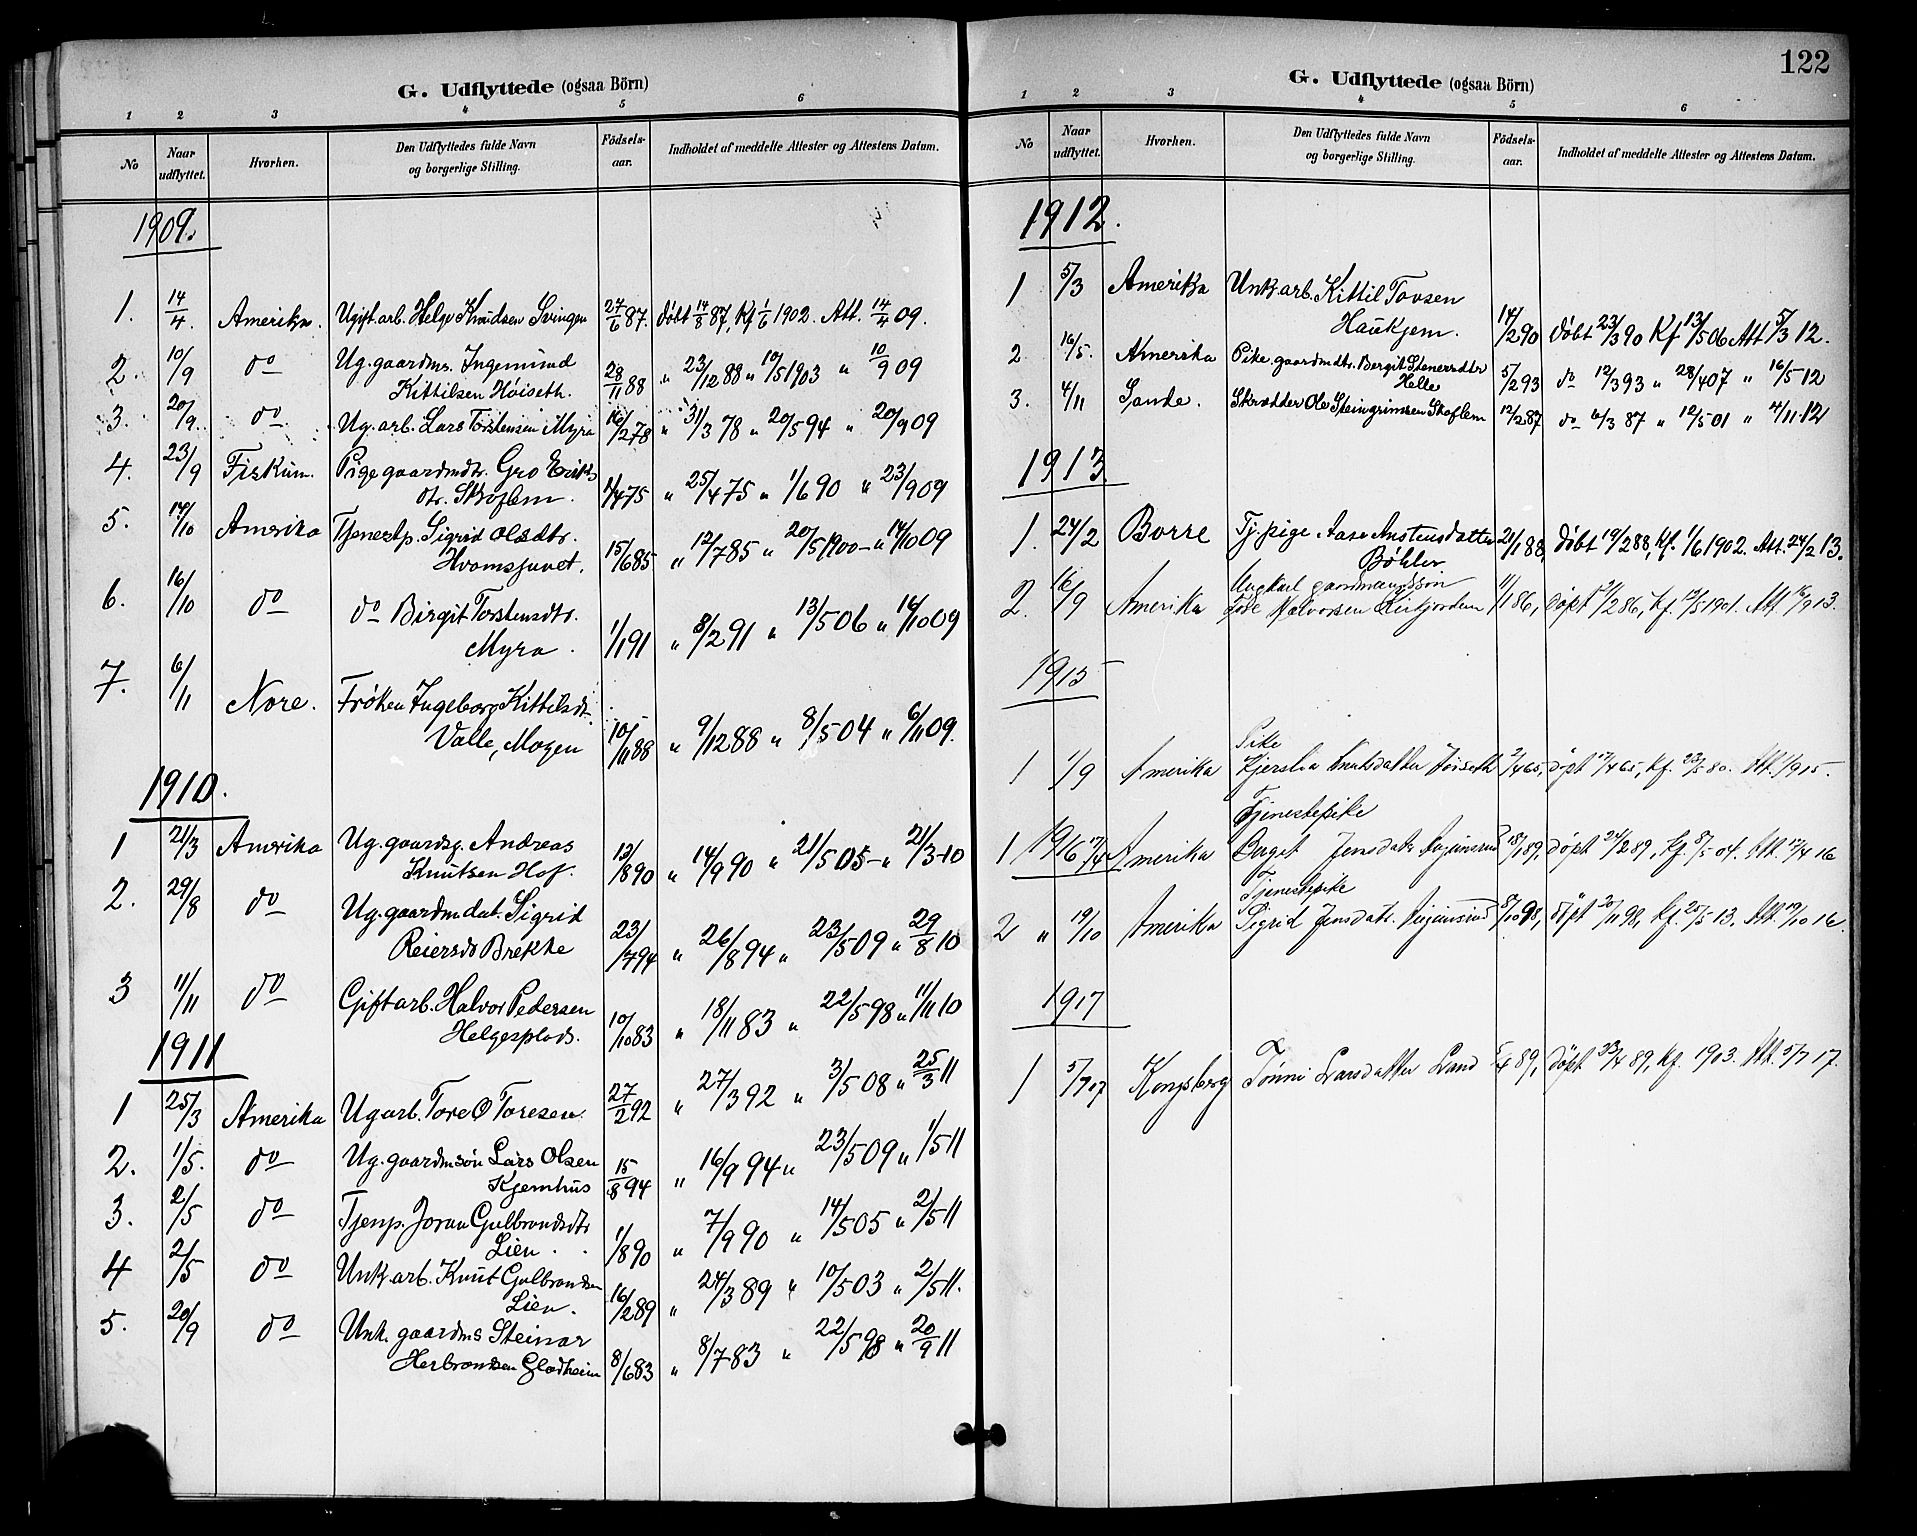 G. Udflyttede (ogsaa Börn)
1 2 3 4 5 6
No Naar udflyttet. Hvorhen. Den Udflyttedes fulde Navn og borgerlige Stilling. Födsels-aar. Indholdet af meddelte Attester og Attestens Datum.
1909.
1. 14/4. Amerika. Ugift. arb. Helge Knudsen Svingen 27/6 87. Døbt 14/8 87, Kf 1/6 1902. Att. 14/4 09.
2. 10/9 do Ug. gaardms. Ingemund
Kittilsen Höiseth. 28/11 88 " 23/12 88 " 10/5 1903 " 10/9 09
3. 20/9. do Ug. arb. Lars Torstensen Myra 16/2 78 " 31/3 78 " 20/5 94 " 20/9 09
4. 23/9 Fiskum. Pige gaardmdtr. Gro Eriks
dtr. Skoflem. 1/4 75 " 25/4 75 " 1/6 90 " 23/9 09
5. 14/10 Amerika Tjenestp. Sigrid Olsdtr.
Hvomsjuvet. 15/6 85 " 12/7 85 " 20/5 1900 - " 14/10 09
6. 16/10 do do Birgit Torstensdtr.
Myra. 1/1 91 " 8/2 91 " 13/5 06 " 16/10 09
7. 6/11 Nore. Frøken Ingeborg Kittilsdt.
Valle, Mogen 10/11 88 " 9/12 88 " 8/5 04 " 6/11 09.
1910.
1 21/3 Amerika Ug. gaardsg. Andreas
Knutsen Hof. 13/8 90 " 14/9 90 " 21/5 05 - " 21/3 10
2. 29/8 do Ug. gaardmdat. Sigrid
Reiersd Brekke 23/7 94 " 26/8 94 " 23/5 09 " 29/8 10
3 11/11 do Gift arb. Halvor Pedersen
Helgesplads. 10/10 83 " 18/11 83 " 22/5 98 " 11/11 10
1911
1 25/3 Amerika Ug arb. Tore O Toresen. 27/2 92 " 27/3 92 " 3/5 08 " 25/3 11
2. 1/5. do Ug. gaardmsön Lars Olsen
Kjemhus 15/8 94 " 16/9 94 " 23/5 09 " 1/5 11
3. 2/5 do Tjenp. Joran Gulbrandsdtr
Lien. 1/8 90 " 7/9 90 " 14/5 05 " 2/5 11
4 2/5 do Unk arb. Knut Gulbrandsen
Lien. 16/2 89 " 24/3 89 " 10/5 03 " 2/5 11.
5. 20/9 do Unk. gaardms Steinar
Herbrandsen Gladheim 8/6 83 " 8/7 83 " 22/5 98 " 20/9 11
122
G. Udflyttede (ogsaa Börn)
1 2 3 4 5 6
No Naar udflyttet. Hvorhen. Den Udflyttedes fulde Navn og borgerlige Stilling. Födsels-aar. Indholdet af meddelte Attester og Attestens Datum.
1912.
1 5/3 Amerika Unk arb. Kittil Tovsen
Haukjem. 14/2 90 Døbt 23/3 90 Kf 13/5 06 Att 5/3 12.
2 16/5. Amerika Pike. gaardmdtr. Bergit Stenersdtr
Helle 5/2 93 do 12/3 93 " 28/4 07 " 16/5 12
3. 4/11 Sande. Skrædder Ole Steingrimsen Skoflem 12/2 87 do 6/3 87 " 12/5 01 " 4/11 12
1913.
1. 24/2 Borre Tj. pige. Aase Anstensdatter
Bøhler 21/1 88, Døbt 19/2 88, Kf. 1/6 1902. Att. 24/2 13.
2. 16/9 Amerika Ungkarl gaardmandssøn
Tore Halvorsen Kirkjorden 11/1 86, Døpt 21/2 86, Kf. 12/5 1901. Att. 16/9 13.
1915
Pike
1 1/9 Amerika Kjerstia Knutsdatter Høiseth 2/4 65, døpt 17/4 65, Kf. 23/5 80. Att. 1/9 15.
Tjenestepike
1 1916 17/4 Amerika Berget Jensdatr. 18/1 89, døpt 24/2 89, Kf. 8/5 04. Att. 17/4 16
Tjenestepike
2 " 19/10 Amerika Sigrid Jensdatr. 8/10 98, døpt 20/11 98, Kf. 25/5 13. Att. 19/10 16.
1917
1 5/7 17 Kongsberg Tönni Larsdatter Land 5/4 89, døpt 89, Kf. 1903. Att. 5/7 17.